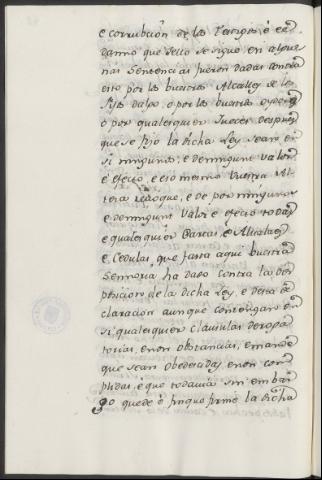 e corrubcion de los Testigos, é el
danno que dello se sigue, en algu-
nas Sentencias fueron dadas contra
esto por los buestros Alcalles de los
fijos dalgo, o por los buestros oydores
o por qualesquier Jueces después
que se fizo la dicha Ley sean en
si ningunas, e de ningunt valor
é efecto, e eso mesmo buestra Al-
teza revoque, e de por ningunos
e de ningunt valor e efecto todas
e qualesquier Cartas, e Alvalaes
e Cedulas, que fasta aqui buestra
Sennoria ha dado contra la dis-
posicion de la dicha Ley, e desta de-
claracion aunque contengan en
si qualesquiera clausulas deroga-
torias, e non obstancias, e mande
que sean obedecidas, e non com-
plidas, é que todavia sin embar-
go quede é finque firme la dicha